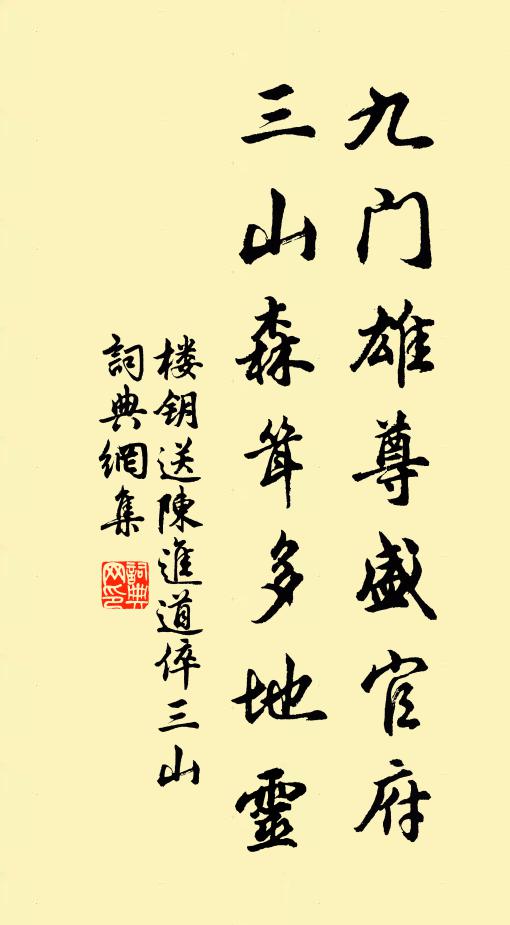 九门雄尊盛官府
三山森耸多地靈
楼钥送陳進道倅三山
詞典網集
詞典网印